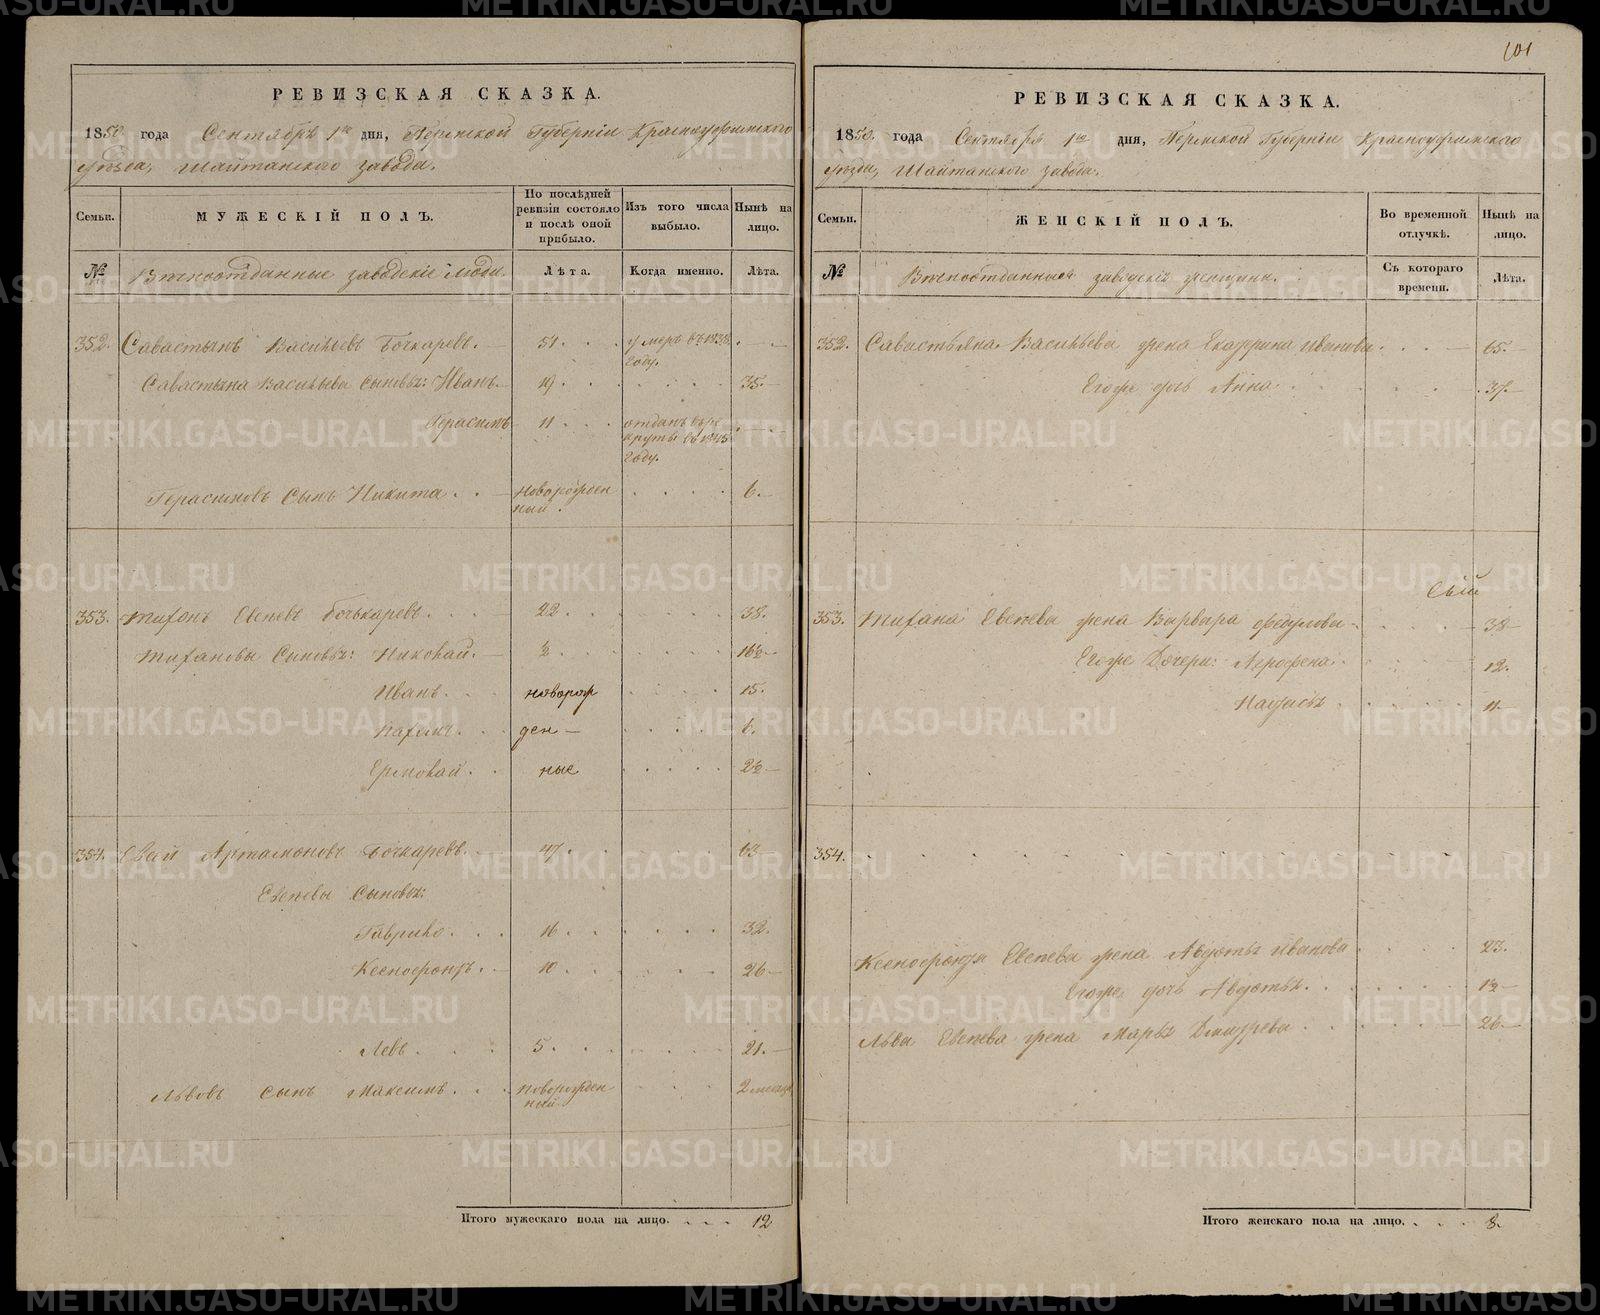 РЕВИЗСКАЯ СКАЗКА.
1850 года Сентября 1го дня, Пермской Губерніи Красноуфимскаго
уѣзда, Шайтанскаго завода.
Семьи.
МУЖЕСКІЙ ПОЛЪ.
По послѣдней ревизіи состояло и послѣ оной прибыло.
Изъ того числа выбыло.
Нынѣ на лицо.
№
Вѣчноотданные заводскіе люди.
Лѣта.
Когда именно.
Лѣта.
352. Савастьянъ Васильевъ Бочкаревъ. 51. умеръ въ 1838 году.
Савастьяна Васильева сыновья: Иванъ 19. 35.
Герасимъ 11. отданъ въ рекруты въ 1845 году.
Герасимовъ Сынъ Никита. новорожденный. 6.
353. Тифонъ Евсѣевъ Бочькаревъ. 22. 38.
Тифановы Сыновья: Николай. ½. 16½
Иванъ. новорож 15.
Пафомъ. ден 6.
Ермолай. ные 2½
354. Евсѣй Артамоновъ Бочкаревъ. 47. 63
Евсѣевы Сыновья:
Гаврило. 16. 32.
Ксенофонтъ. 10. 26
Левъ. 5. 21.
Львовъ сынъ Максимъ. новорожденный. 2 месяца
Итого мужескаго пола на лицо. 12
101
РЕВИЗСКАЯ СКАЗКА.
1850 года Сентября 1го дня, Пермской Губерніи Красноуфимскаго
уѣзда, Шайтанскаго завода.
Семьи.
ЖЕНСКІЙ ПОЛЪ.
Во временной отлучкѣ.
Нынѣ на лицо.
№
Вѣчноотданныя заводскія женщины.
Съ котораго времени.
Лѣта.
352. Савастьяна Васильева жена Екатерина Иванова. 65.
Его же дочь Анна. 37.
353. Тифана Евсѣева жена Варвара Федулова 38
Его же Дочери: Агрофена. 12.
Настасья 11.
354.
Ксенофонта Евсѣева жена Авдотья Иванова 23.
Его же дочь Авдотья. 1½
Льва Евсѣева жена Марья Дмитрева 26.
Итого женскаго пола на лицо. 8.
METRIKI.GASO-URAL.RU